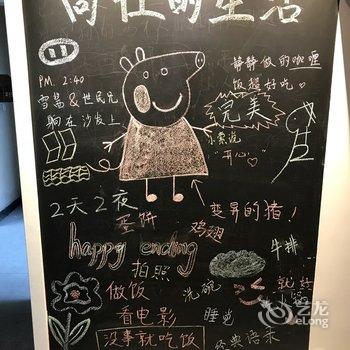 同性的生活
静静做的咖喱
饭超好吃!
PM. 2:40
雪茗&世民兄
躺在沙发上
完美
小索说
"开心"
2天2夜
蛋饼
变异的猪!
鸡翅
happy ending
牛排
拍照
做饭
洗碗
就好
看电影
睡觉
没事就吃饭
经典语录
艺龙
eLong